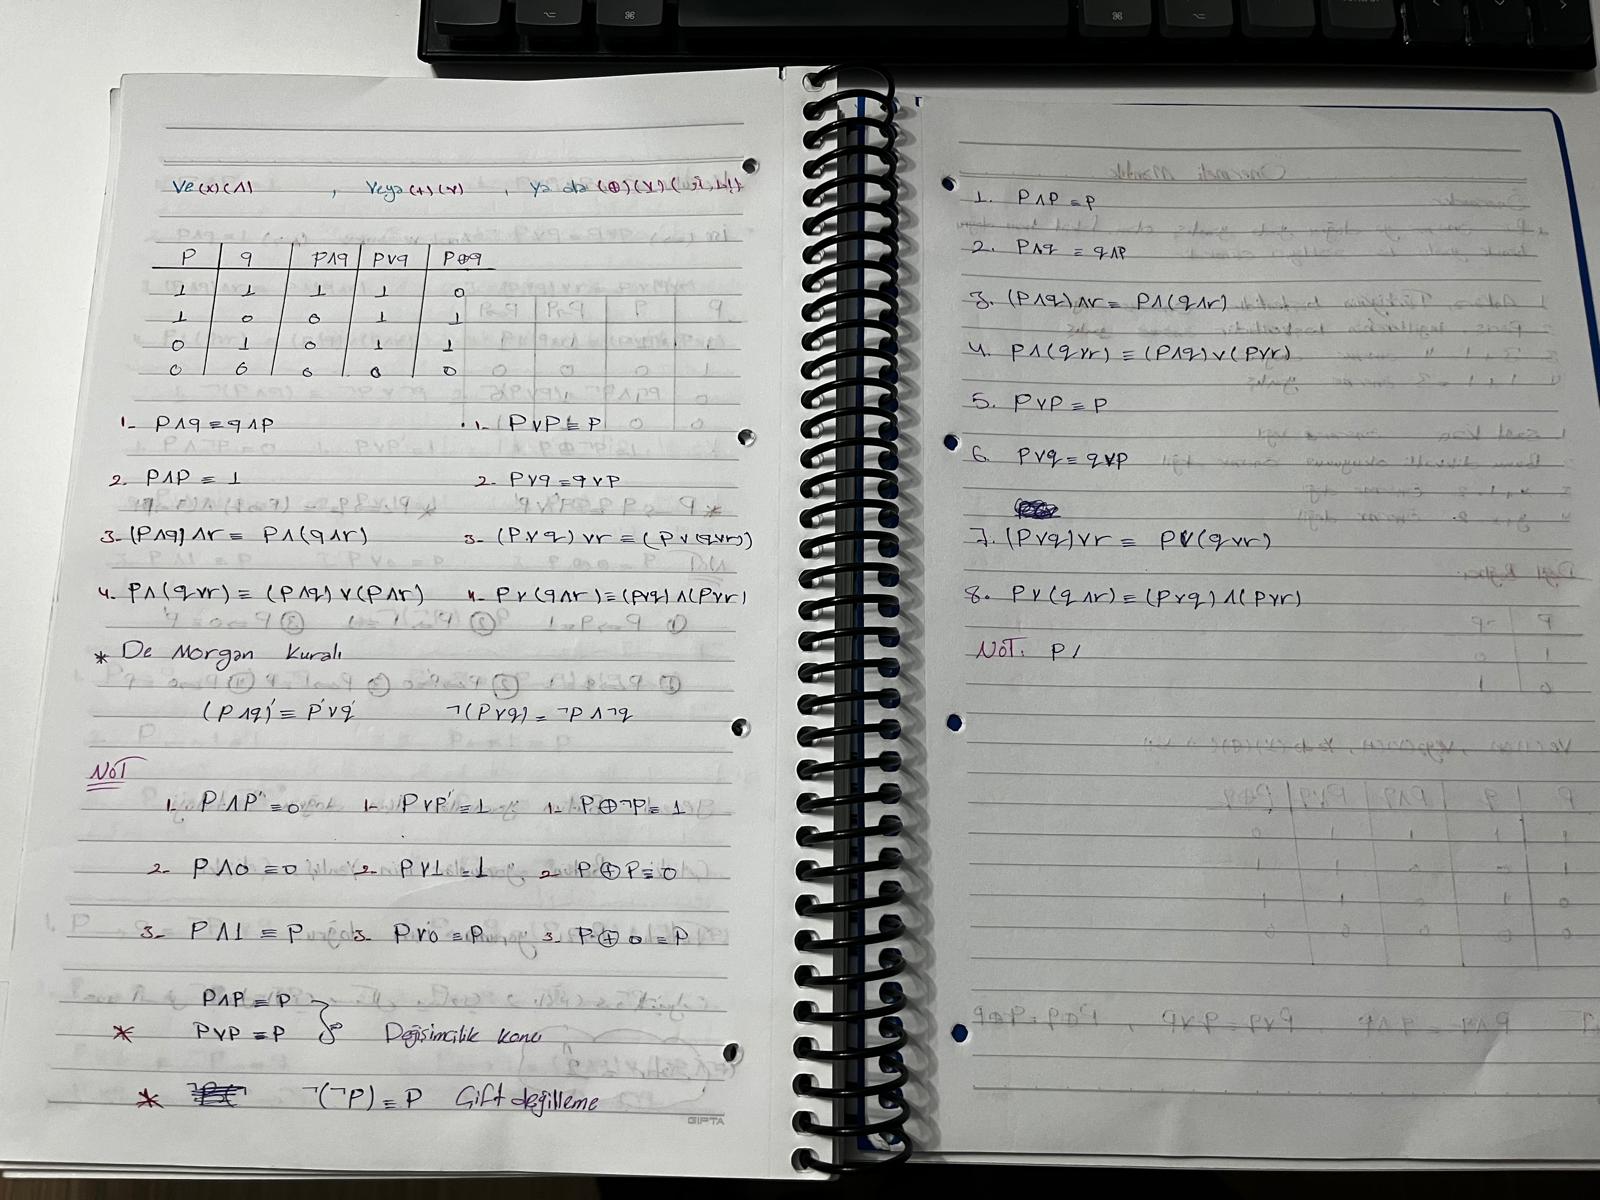 Ve (x) (∧) , Veya (+) (∨) , Ya da (⊕) (⊻)
P q P∧q P∨q P⊕q
1 1 1 1 0
1 0 0 1 1
0 1 0 1 1
0 0 0 0 0
1- P∧q ≡ q∧P
1- P∨P ≡ P
2. P∧P ≡ 1
2- P∨q ≡ q∨P
3- (P∧q)∧r ≡ P∧(q∧r)
3- (P∨q)∨r ≡ (P∨(q∨r))
4- P∧(q∨r) ≡ (P∧q)∨(P∧r)
4- P∨(q∧r) ≡ (P∨q)∧(P∨r)
* De Morgan Kuralı
(P∧q)' ≡ P'∨q' ¬(P∨q) ≡ ¬P∧¬q
NOT
1- P∧P' ≡ 0 1- P∨P' ≡ 1 1- P⊕¬P ≡ 1
2- P∧0 ≡ 0 2- P∨1 ≡ 1 2- P⊕P ≡ 0
3- P∧1 ≡ P 3- P∨0 ≡ P 3- P⊕0 ≡ P
P∧P ≡ P
* P∨P ≡ P Değişimcilik
* ¬(¬P) ≡ P Çift değilleme
GIPTA
1. P∧P ≡ P
2. P∧q ≡ q∧P
3. (P∧q)∧r ≡ P∧(q∧r)
4. P∧(q∨r) ≡ (P∧q)∨(P∨r)
5. P∨P ≡ P
6. P∨q ≡ q∨P
7. (P∨q)∨r ≡ P∨(q∨r)
8. P∨(q∧r) ≡ (P∨q)∧(P∨r)
NOT: P /